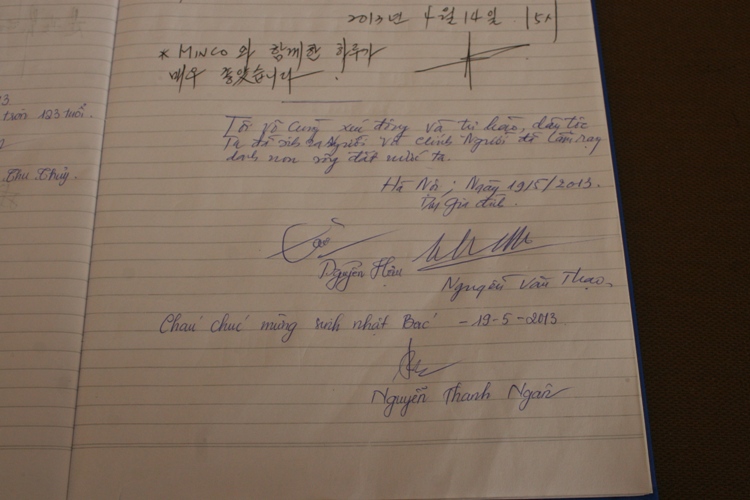 3
tròn 123 tuổi.
Thu Thủy.
2013년 4월 14일. 15시
* MINCO와 함께한 하루가
매우 좋았습니다.
Tôi vô cùng xúc động và tự hào, dân tộc
ta đã sinh ra Người và chính Người đã làm rạng
danh non sông đất nước ta.
Hà Nội, Ngày 19/5/2013.
Nguyễn
Nguyễn Văn Thạo.
Cháu chúc mừng sinh nhật Bác - 19-5-2013
Nguyễn Thanh Ngân